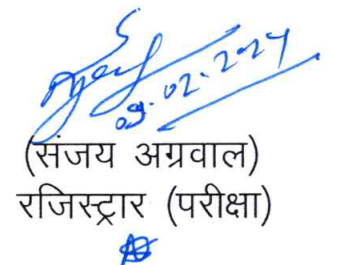 09.02.2024
(संजय अग्रवाल)
रजिस्ट्रार (परीक्षा)